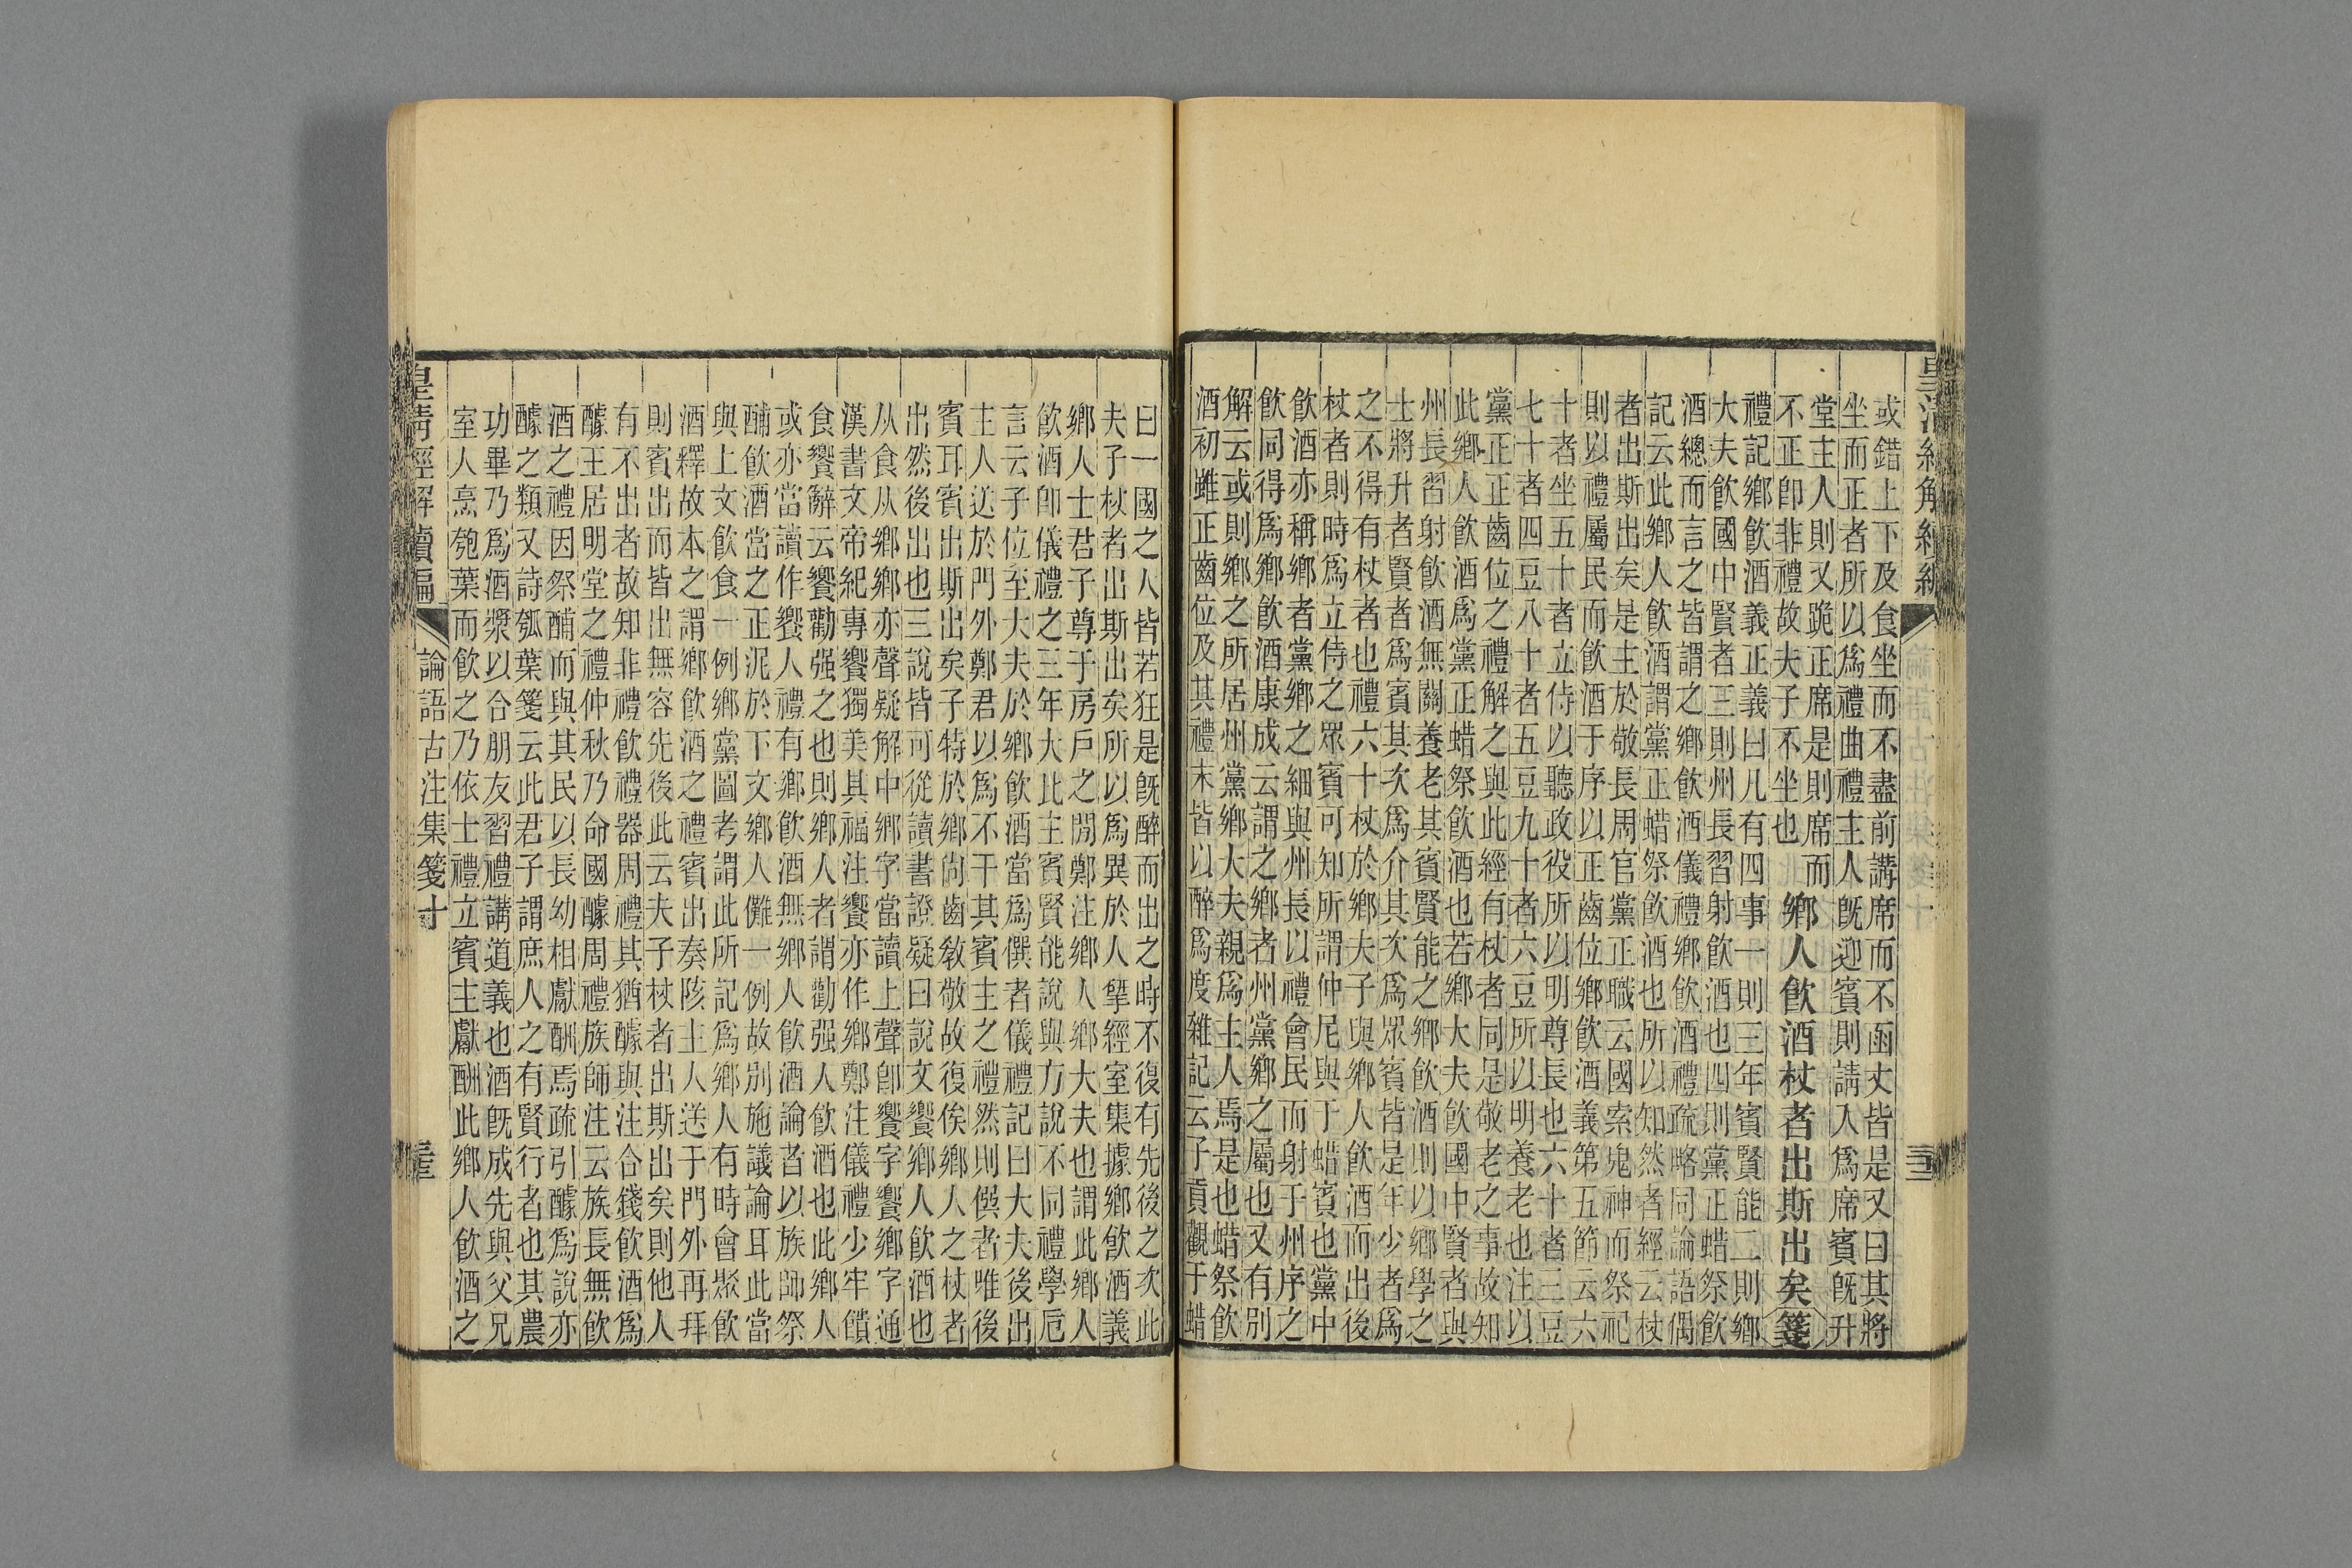 或錯上下及食坐而不盡前講席而不函丈皆是又曰其將
坐而正者所以爲禮曲禮主人旣迎賓則請入爲席賓旣升
堂主人則又跪正席是則席而
不正卽非禮故夫子不坐也
鄉人飮酒杖者出斯出矣箋
禮記鄉飮酒義正義曰凡有四事一則三年賓賢能二則鄉
大夫飮國中賢者三則州長習射飮酒也四則黨正蜡祭飮
酒總而言之皆謂之鄉飮酒儀禮鄉飮酒禮疏略同論語偶
記云此鄉人飮酒謂黨正蜡祭飮酒也所以知然者經云杖
者出斯出矣是主於敬長周官黨正職云國索鬼神而祭祀
則以禮屬民而飮酒于序以正齒位鄉飮酒義第五節云六
十者坐五十者立侍以聽政役所以明尊長也六十者三豆
七十者四豆八十者五豆九十者六豆所以明養老也注以
黨正正齒位之禮解之與此經有杖者同是敬老之事故知
此鄉人飮酒爲黨正蜡祭飮酒也若鄉大夫飮國中賢者與
州長習射飮酒無關養老其賓賢能之鄉飮酒則以鄉學之
士將升者賢者爲賓其次爲介其次爲眾賓皆是年少者爲
之不得有杖者也禮六十杖於鄉夫子與鄉人飮酒而出後
杖者則時爲立侍之眾賓可知所謂仲尼與于蜡賓也黨中
飮酒亦稱鄉者黨鄉之細與州長以禮會民而射于州序之
飮同得爲鄉飮酒康成云謂之鄉者州黨鄉之屬也又有別
解云或則鄉之所居州黨鄉大夫親爲主人焉是也蜡祭飮
酒初雖正齒位及其禮末皆以醉爲度雜記云子貢觀于蜡
曰一國之人皆若狂是旣醉而出之時不復有先後之次此
夫子杖者出斯出矣所以爲異於人揅經室集據鄉飮酒義
鄉人士君子尊于房戶之閒鄭注鄉人鄉大夫也謂此鄉人
飮酒卽儀禮之三年大比主賓賢能說與方說不同禮學卮
言云子位至大夫於鄉飮酒當爲僎者儀禮記曰大夫後出
主人送於門外鄭君以爲不干其賓主之禮然則僎者唯後
賓耳賓出斯出矣子特於鄉尙齒敎敬故復俟鄉人之杖者
出然後出也三說皆可從讀書證疑曰說文饗鄉人飮酒也
从食从鄉鄉亦聲疑解中鄉字當讀上聲卽饗字饗鄉字通
漢書文帝紀專饗獨美其福注饗亦作鄉鄭注儀禮少牢饋
食饗辭云饗勸强之也則鄉人者謂勸强人飮酒也此鄉人
或亦當讀作饗人禮有鄉飮酒無鄉人飮酒論者以族師祭
酺飮酒當之正泥於下文鄉人儺一例故別施議論耳此當
與上文飮食一例鄉黨圖考謂此所記爲鄉人有時會聚飮
酒釋故本之謂鄉飮酒之禮賓出奏陔主人送于門外再拜
則賓出而皆出無容先後此云夫子杖者出斯出矣則他人
有不出者故知非禮飮禮器周禮其猶醵與注合錢飮酒爲
醵王居明堂之禮仲秋乃命國醵周禮族師注云族長無飮
酒之禮因祭酺而與其民以長幼相獻酬焉疏引醵爲說亦
醵之類又詩瓠葉箋云此君子謂庶人之有賢行者也其農
功畢乃爲酒漿以合朋友習禮講道義也酒旣成先與父兄
室人烹瓠葉而飮之乃依士禮立賓主獻酬此鄉人飮酒之
皇淸經解續編
論語古注集箋十